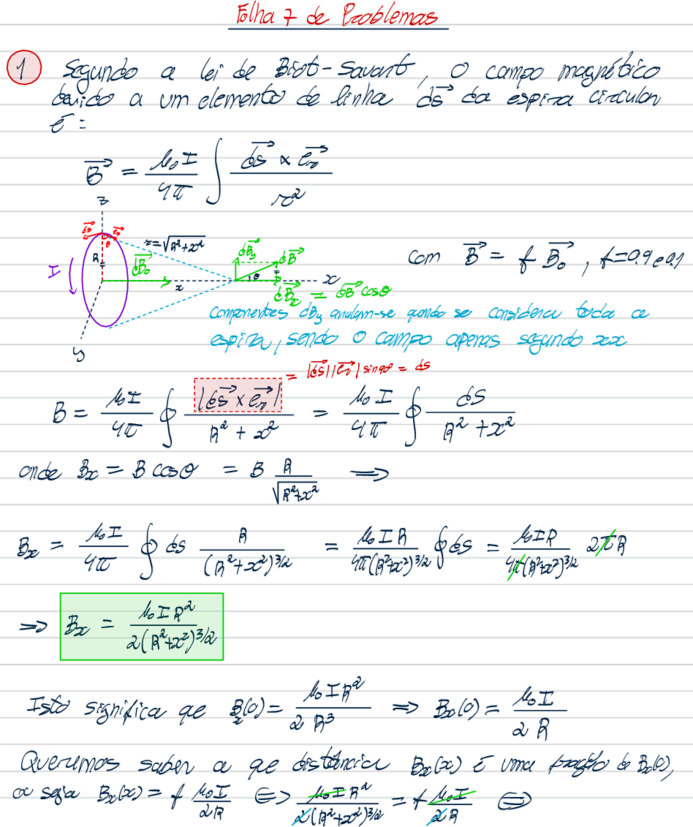 Folha 7 de Problemas
1 Segundo a lei de Biot-Savart, o campo magnético
devido a um elemento de linha d𝑠⃗ da espira circular
é:
B⃗ = μ₀I/4π ∫ d𝑠⃗ × e⃗ᵣ / r²
z
ds⃗ e⃗ᵣ
θ
r=√R²+x²
R
I
dB⃗₀
x
dB⃗y dB⃗
θ
x
dB⃗x = dB cosθ
y
com B⃗ = f B⃗₀, f=0.9 e 0.1
componentes dBy anulam-se quando se considera toda a
espira, sendo o campo apenas segundo xx
= |ds⃗||e⃗ᵣ| sin90º = ds
B = μ₀I/4π ∮ |ds⃗ × e⃗ᵣ| / R² + x² = μ₀I/4π ∮ ds / R² + x²
onde Bx = B cosθ = B R/√R²+x² ⟹
Bx = μ₀I/4π ∮ ds R/(R²+x²)^3/2 = μ₀IR/4π(R²+x²)^3/2 ∮ds = μ₀IR/4π(R²+x²)^3/2 2πR
⟹ Bx = μ₀IR²/2(R²+x²)^3/2
Isto significa que Bx(0) = μ₀IR²/2R³ ⟹ Bx(0) = μ₀I/2R
Queremos saber a que distância Bx(x) é uma fração de Bx(0),
ou seja Bx(x) = f μ₀I/2R ⟺ μ₀IR²/2(R²+x²)^3/2 = f μ₀I/2R ⟺